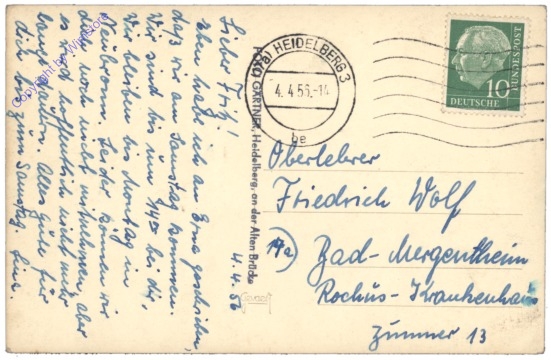 Lieber Fritz!
Eben habe ich an Erna geschrieben,
daß wir am Samstag kommen.
Wir sind bis um 14°° bei dir.
Wir bleiben bis Montag in
Neubronn. Leider können wir
dich noch nicht mitnehmen aber
es wird hoffentlich nicht mehr
lange dauern. Alles Gute für
dich bis zum Samstag
4.4.56
POST GÄRTNER, Heidelberg, an der Alten Brücke
Gevaert
(17a) HEIDELBERG 3
4.4.56.-14
be
10
DEUTSCHE
BUNDESPOST
Oberlehrer
Friedrich Wolf
(14a) Bad-Mergentheim
Rochus-Krankenhaus
Zimmer 13
Copyright by Winsford